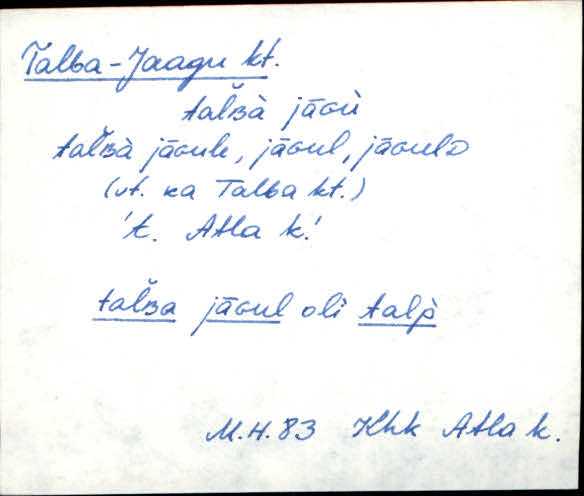 Talba-Jaagu kt.
tal̆ʙà jāGù
tal̆ʙà jāGule, jāGul, jāGulᴅ
(vt. ka Talba kt.)
't. Atla k.'
tal̆ʙa jāGul oli talʙ̀
M.H.83 Khk Atla k.